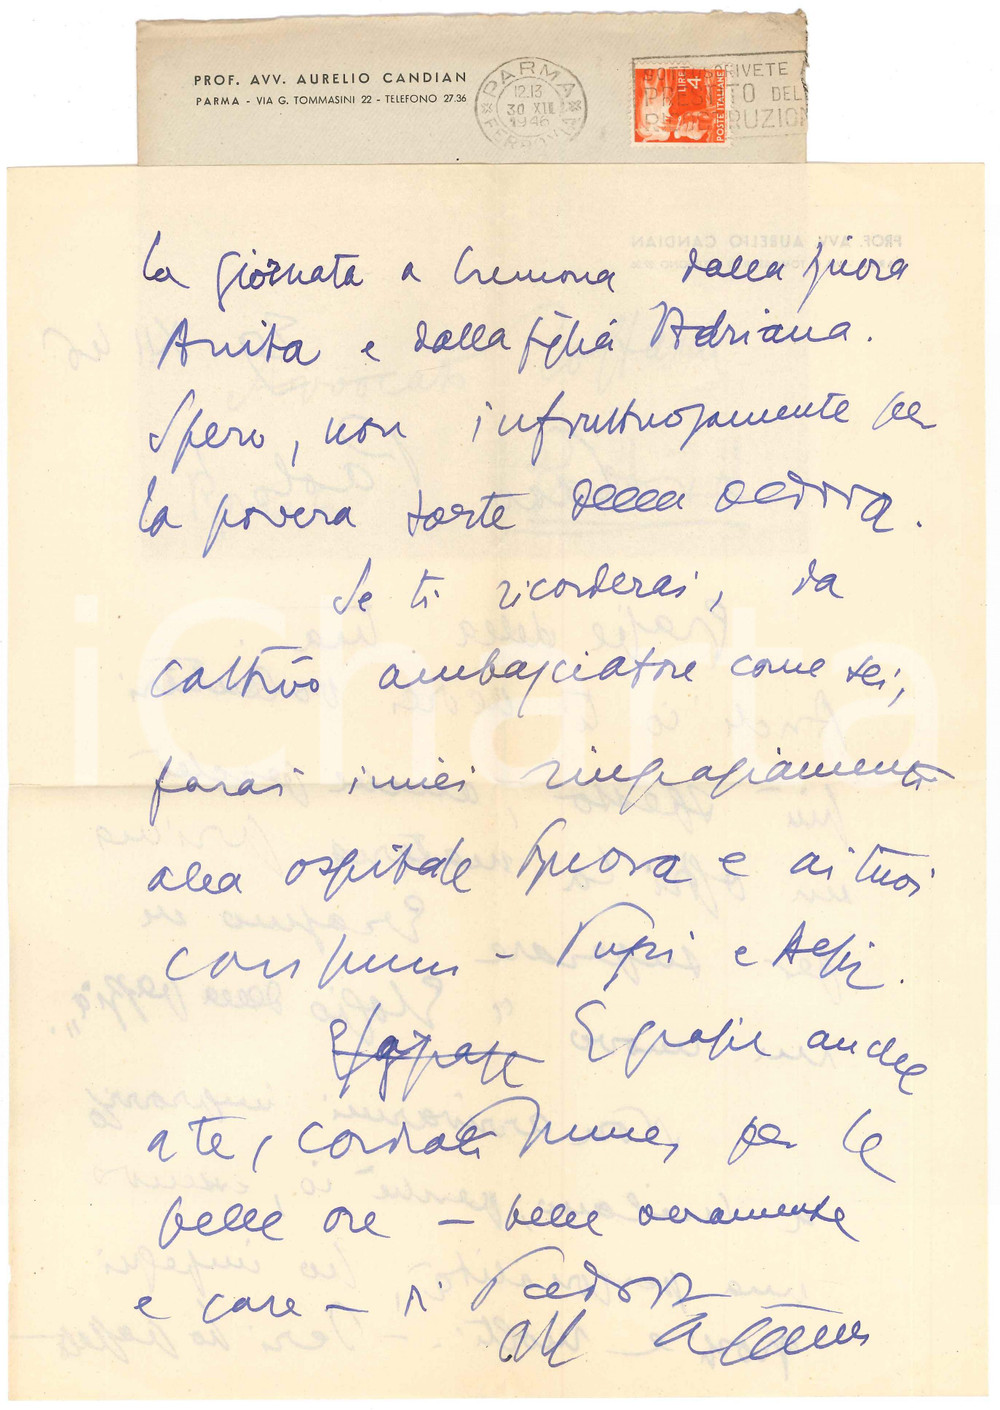 PROF. AVV. AURELIO CANDIAN
PARMA - VIA G. TOMMASINI 22 - TELEFONO 27.36
PARMA
12.13
30 XII
1946
FERROVIA
LIRE 4
POSTE ITALIANE
PRESTITO DEL
iCharta
la giornata a Cremona dalla suora
Anita e dalla figlia Adriana.
Spero, non infruttuosamente per
la povera sorte della vedova.
Se ti ricorderai, da
cattivo ambasciatore come sei,
farai i miei ringraziamenti
alla ospitale suora e ai tuoi
consumi - Pupi e
E grazie anche
a te, cordialissimes, per le
belle ore - belle veramente
e care - di Padova